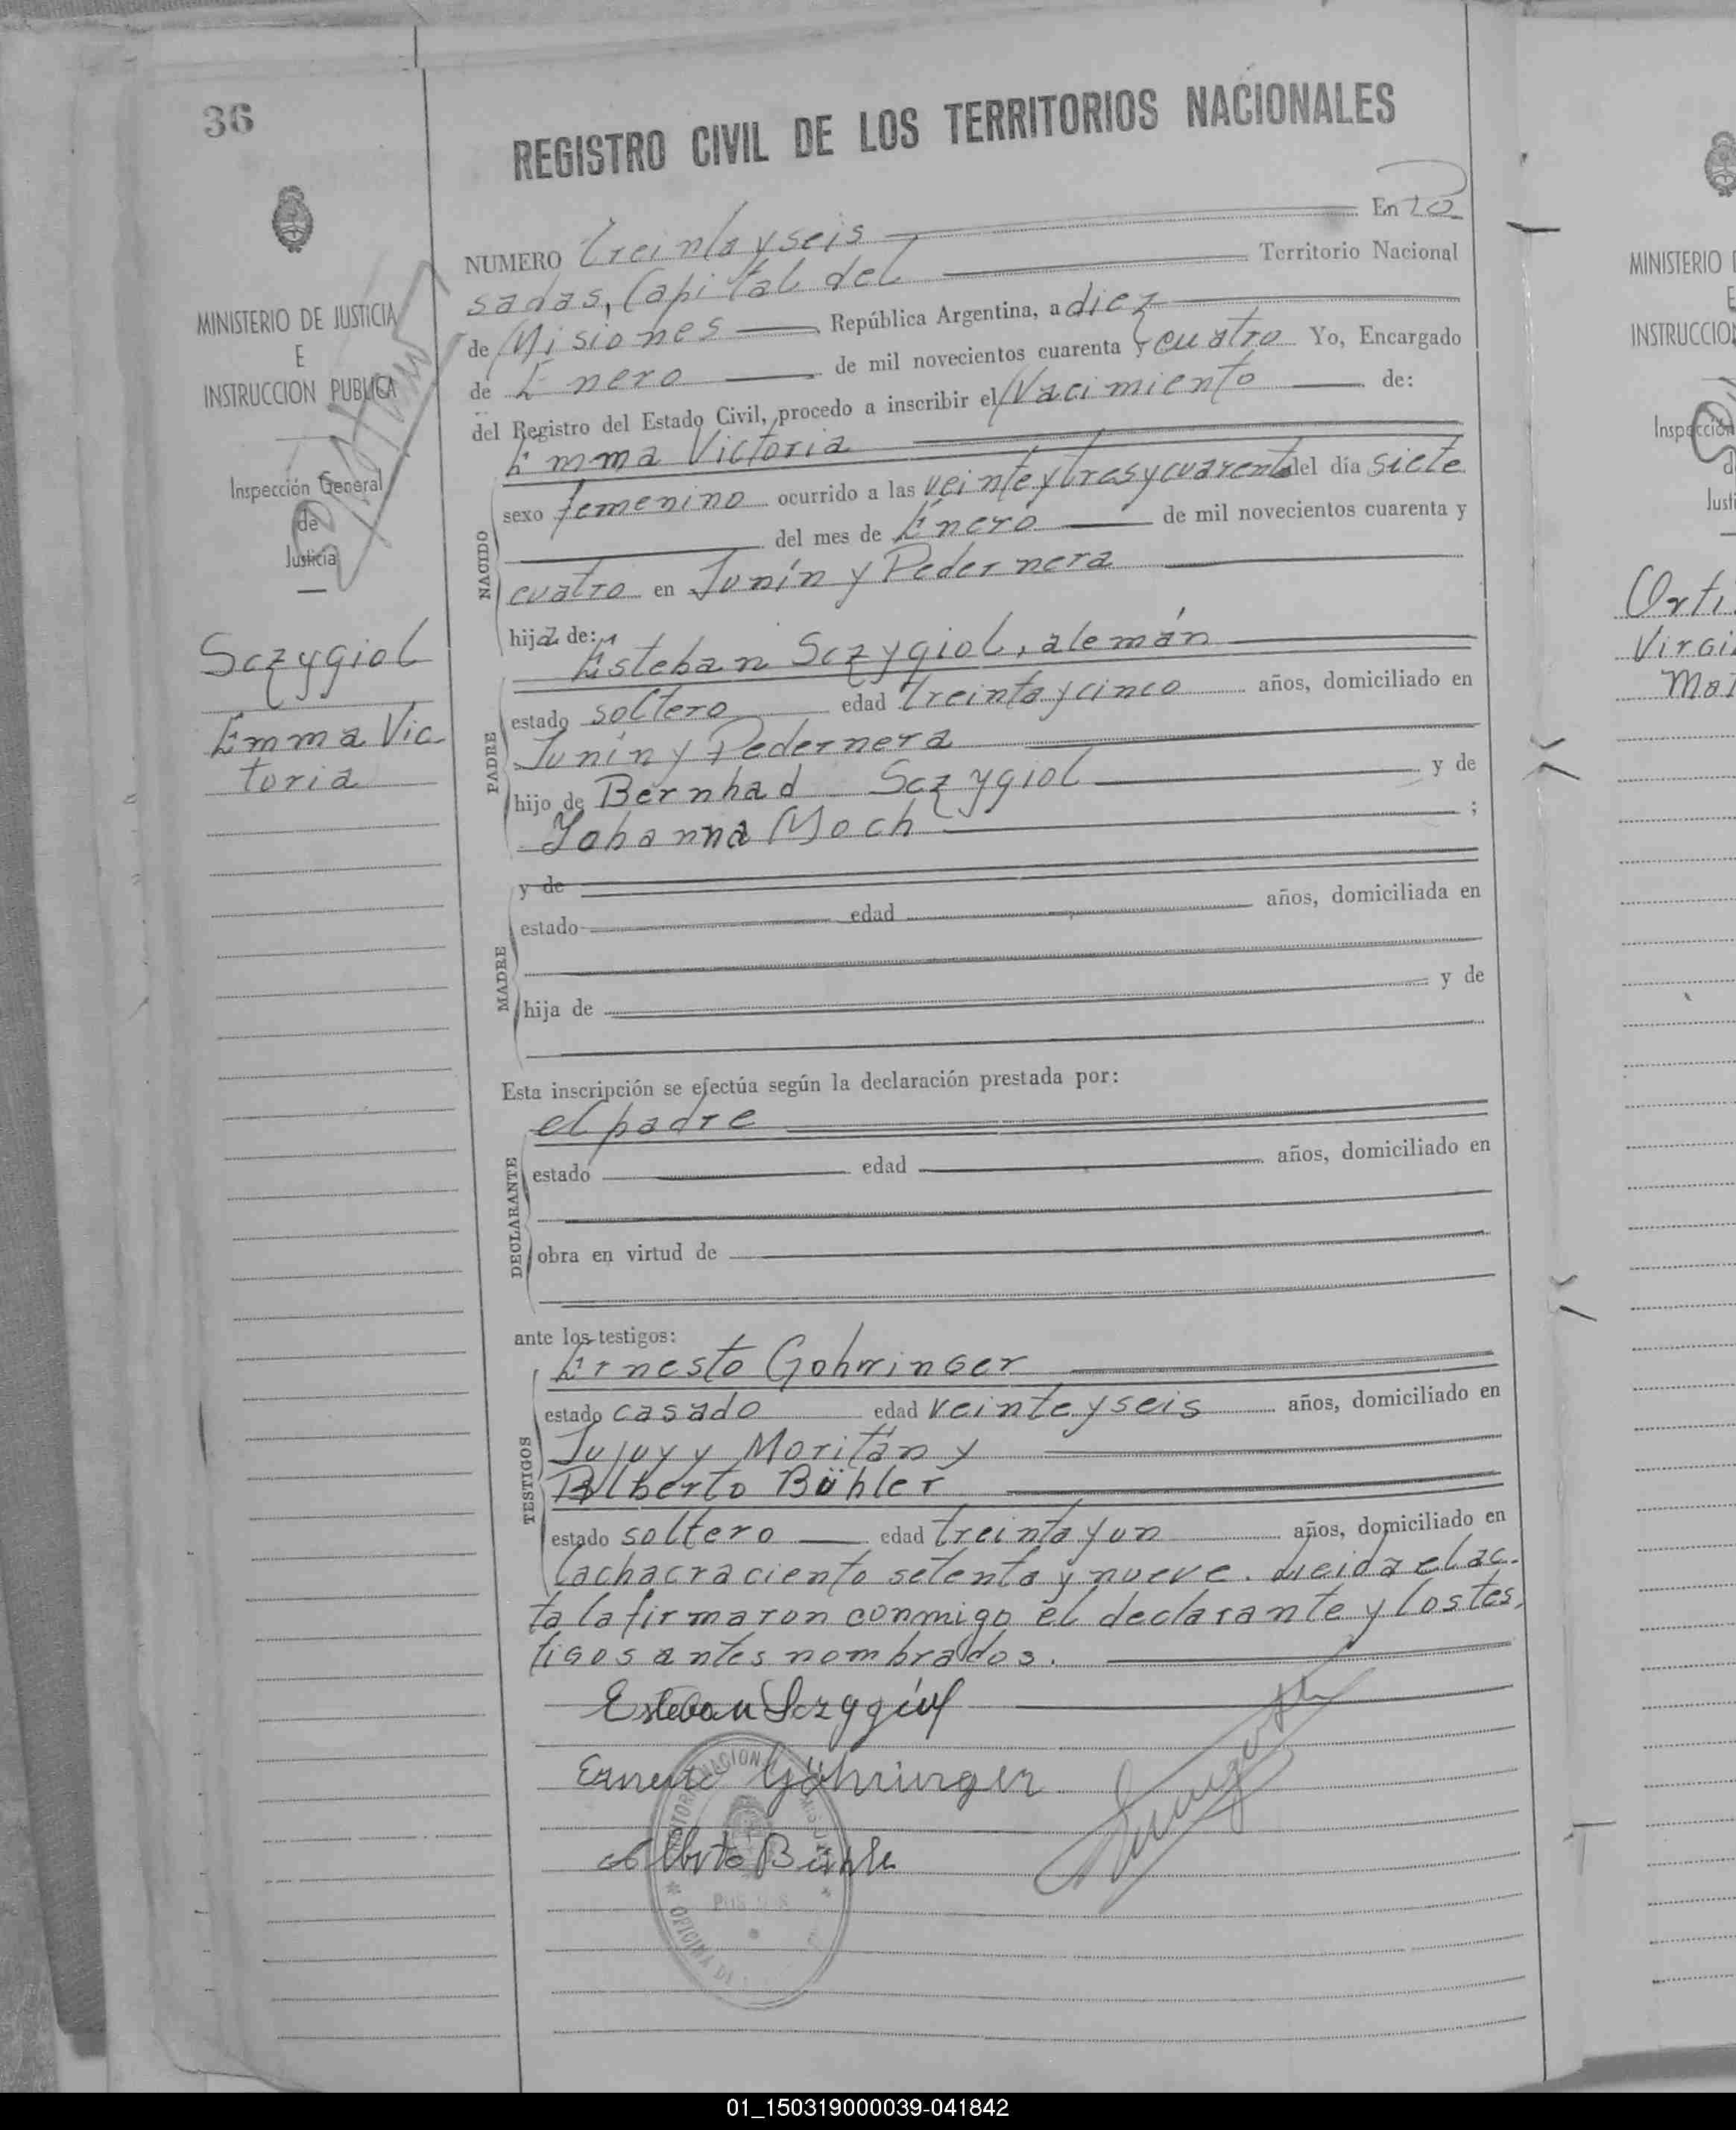 36
MINISTERIO DE JUSTICIA
E
INSTRUCCION PUBLICA
Inspección General
de
Justicia
Sczygiol
Emma Vic-
toria
REGISTRO CIVIL DE LOS TERRITORIOS NACIONALES
NUMERO treinta y seis En Po
sadas, Capital del Territorio Nacional
de Misiones República Argentina, a diez
de Enero de mil novecientos cuarenta y cuatro Yo, Encargado
del Registro del Estado Civil, procedo a inscribir el Nacimiento de:
NACIDO
Emma Victoria
sexo femenino ocurrido a las veinte y tres y cuarenta del día siete
del mes de Enero de mil novecientos cuarenta y
cuatro en Junín y Pedernera
hija de:
PADRE
Esteban Sczygiol, alemán
estado soltero edad treinta y cinco años, domiciliado en
Junín y Pedernera
hijo de Bernhad Sczygiol y de
Johanna Moch ;
MADRE
y de
estado edad años, domiciliada en
hija de y de
Esta inscripción se efectúa según la declaración prestada por:
DECLARANTE
el padre
estado edad años, domiciliado en
obra en virtud de
ante los testigos:
TESTIGOS
Ernesto Gohringer
estado casado edad veinte y seis años, domiciliado en
Jujuy y Moritán y
Alberto Bühler
estado soltero edad treinta y un años, domiciliado en
la chacra ciento setenta y nueve. Leida el ac-
ta la firmaron conmigo el declarante y los tes-
tigos antes nombrados.
Esteban Sczygiol
Ernesto Göhringer
Alberto Bühler
OFICINA DE
MINISTERIO
E
INSTRUCCION
Inspección
Justi
Orti
Virgi
Mar
01_150319000039-041842